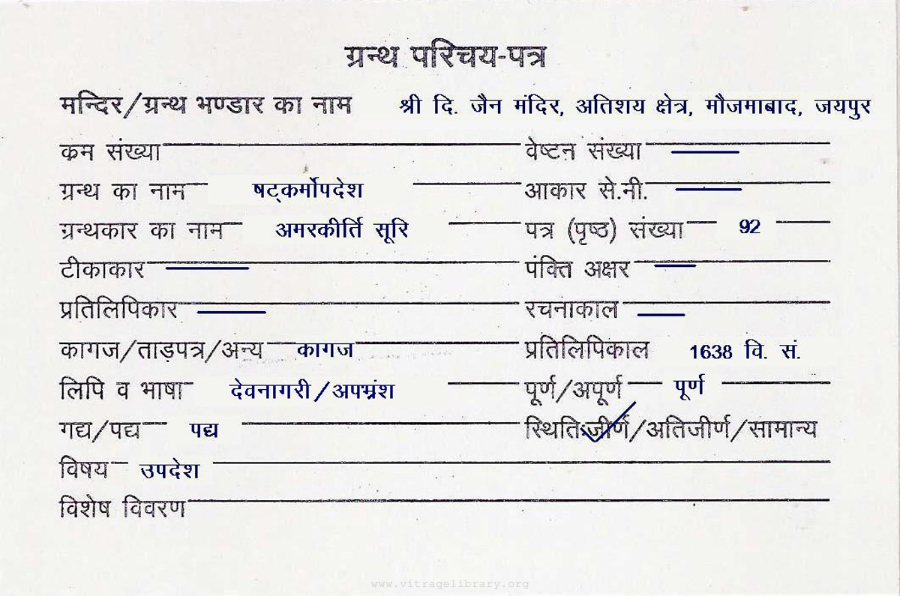 ग्रन्थ परिचय-पत्र
मन्दिर/ग्रन्थ भण्डार का नाम श्री दि. जैन मंदिर, अतिशय क्षेत्र, मौजमाबाद, जयपुर
कम संख्या वेष्टन संख्या
ग्रन्थ का नाम षट्कर्मोपदेश आकार से.नी.
ग्रन्थकार का नाम अमरकीर्ति सूरि पत्र (पृष्ठ) संख्या 92
टीकाकार पंक्ति अक्षर
प्रतिलिपिकार रचनाकाल
कागज/ताड़पत्र/अन्य कागज प्रतिलिपिकाल 1638 वि. सं.
लिपि व भाषा देवनागरी/अपभ्रंश पूर्ण/अपूर्ण पूर्ण
गद्य/पद्य पद्य स्थितिःजीर्ण/अतिजीर्ण/सामान्य
विषय उपदेश
विशेष विवरण
www.vitragelibrary.org